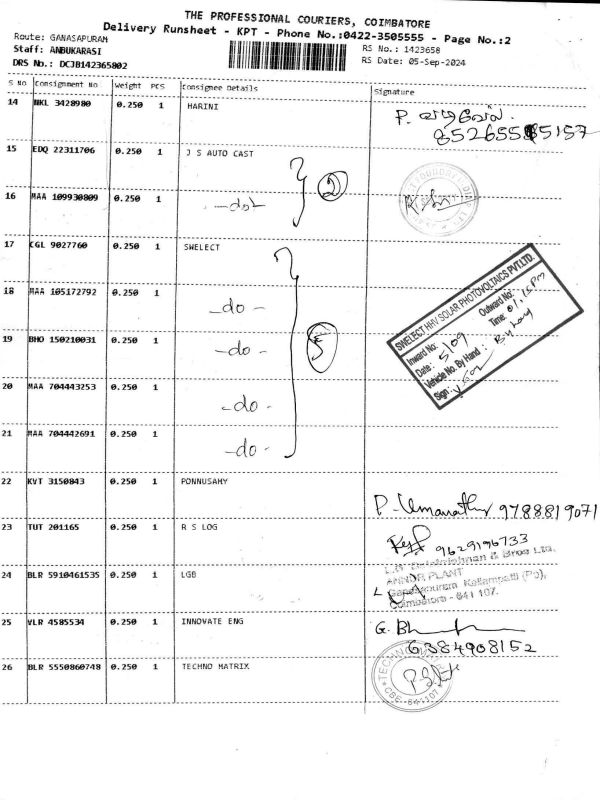 THE PROFESSIONAL COURIERS, COIMBATORE
Delivery Runsheet - KPT - Phone No.:0422-3505555 - Page No.:2
Route: GANASAPURAM
Staff: ANBUKARASI
RS No.: 1423658
DRS No.: DCJB142365802
RS Date: 05-Sep-2024
S No Consignment No Weight PCS Consignee Details Signature
14 NKL 3428980 0.250 1 HARINI
P.
15 EDQ 22311706 0.250 1 J S AUTO CAST
2
16 MAA 109930809 0.250 1 -do-
17 CGL 9027760 0.250 1 SWELECT
SWELECT HHV SOLAR PHOTOVOLTAICS PVT.LTD.
Inward No: Outward No:
Date: 5/09 Time: 01.15pm
Vehicle No. By Hand: By hand
Sign:
18 MAA 105172792 0.250 1 -do-
19 BHO 150210031 0.250 1 -do-
5
20 MAA 704443253 0.250 1 -do-
21 MAA 704442691 0.250 1 -do-
22 KVT 3150843 0.250 1 PONNUSAMY
P. Umanathy 9788819071
23 TUT 201165 0.250 1 R S LOG
9629196733
24 BLR 5910461535 0.250 1 LGB
L.G. Balakrishnan & Bros Ltd.,
ANNUR PLANT
Ganesapuram, Kattampatti (Po),
Coimbatore - 641 107.
25 VLR 4585534 0.250 1 INNOVATE ENG
G. Bh
6384908152
26 BLR 5550860748 0.250 1 TECHNO MATRIX
TECHNO MATRIX
CBE-641107